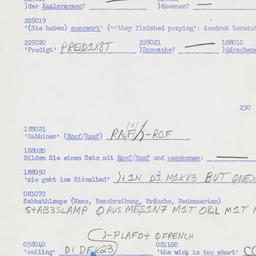 )der Kaalsragen? )dawenen?
229019
"(Sie haben) ausgeort" (='they finished praying': Ausdruk benutzt
229020 229021 188010
'Predigt' PRED1X8T )Droosche? )därschenen
230
188021
'Rabbiner' (Roof/Raaf) RAF/-ROF
188020
Bilden Sie einen Satz mit Roof/Raaf und paaskenen:
188050
'sie geht ins Ritualbad' )+IN DI M1KV3 BUT
081070
Sabbathlampe (Name, Beschreibung, Bräuche, Redensarten)
O AUS MESINZ7 M1T M1T
-PLAFOT OFRENCH
058040 081100
'ceiling' DI DEK23) 'the wick is too short'